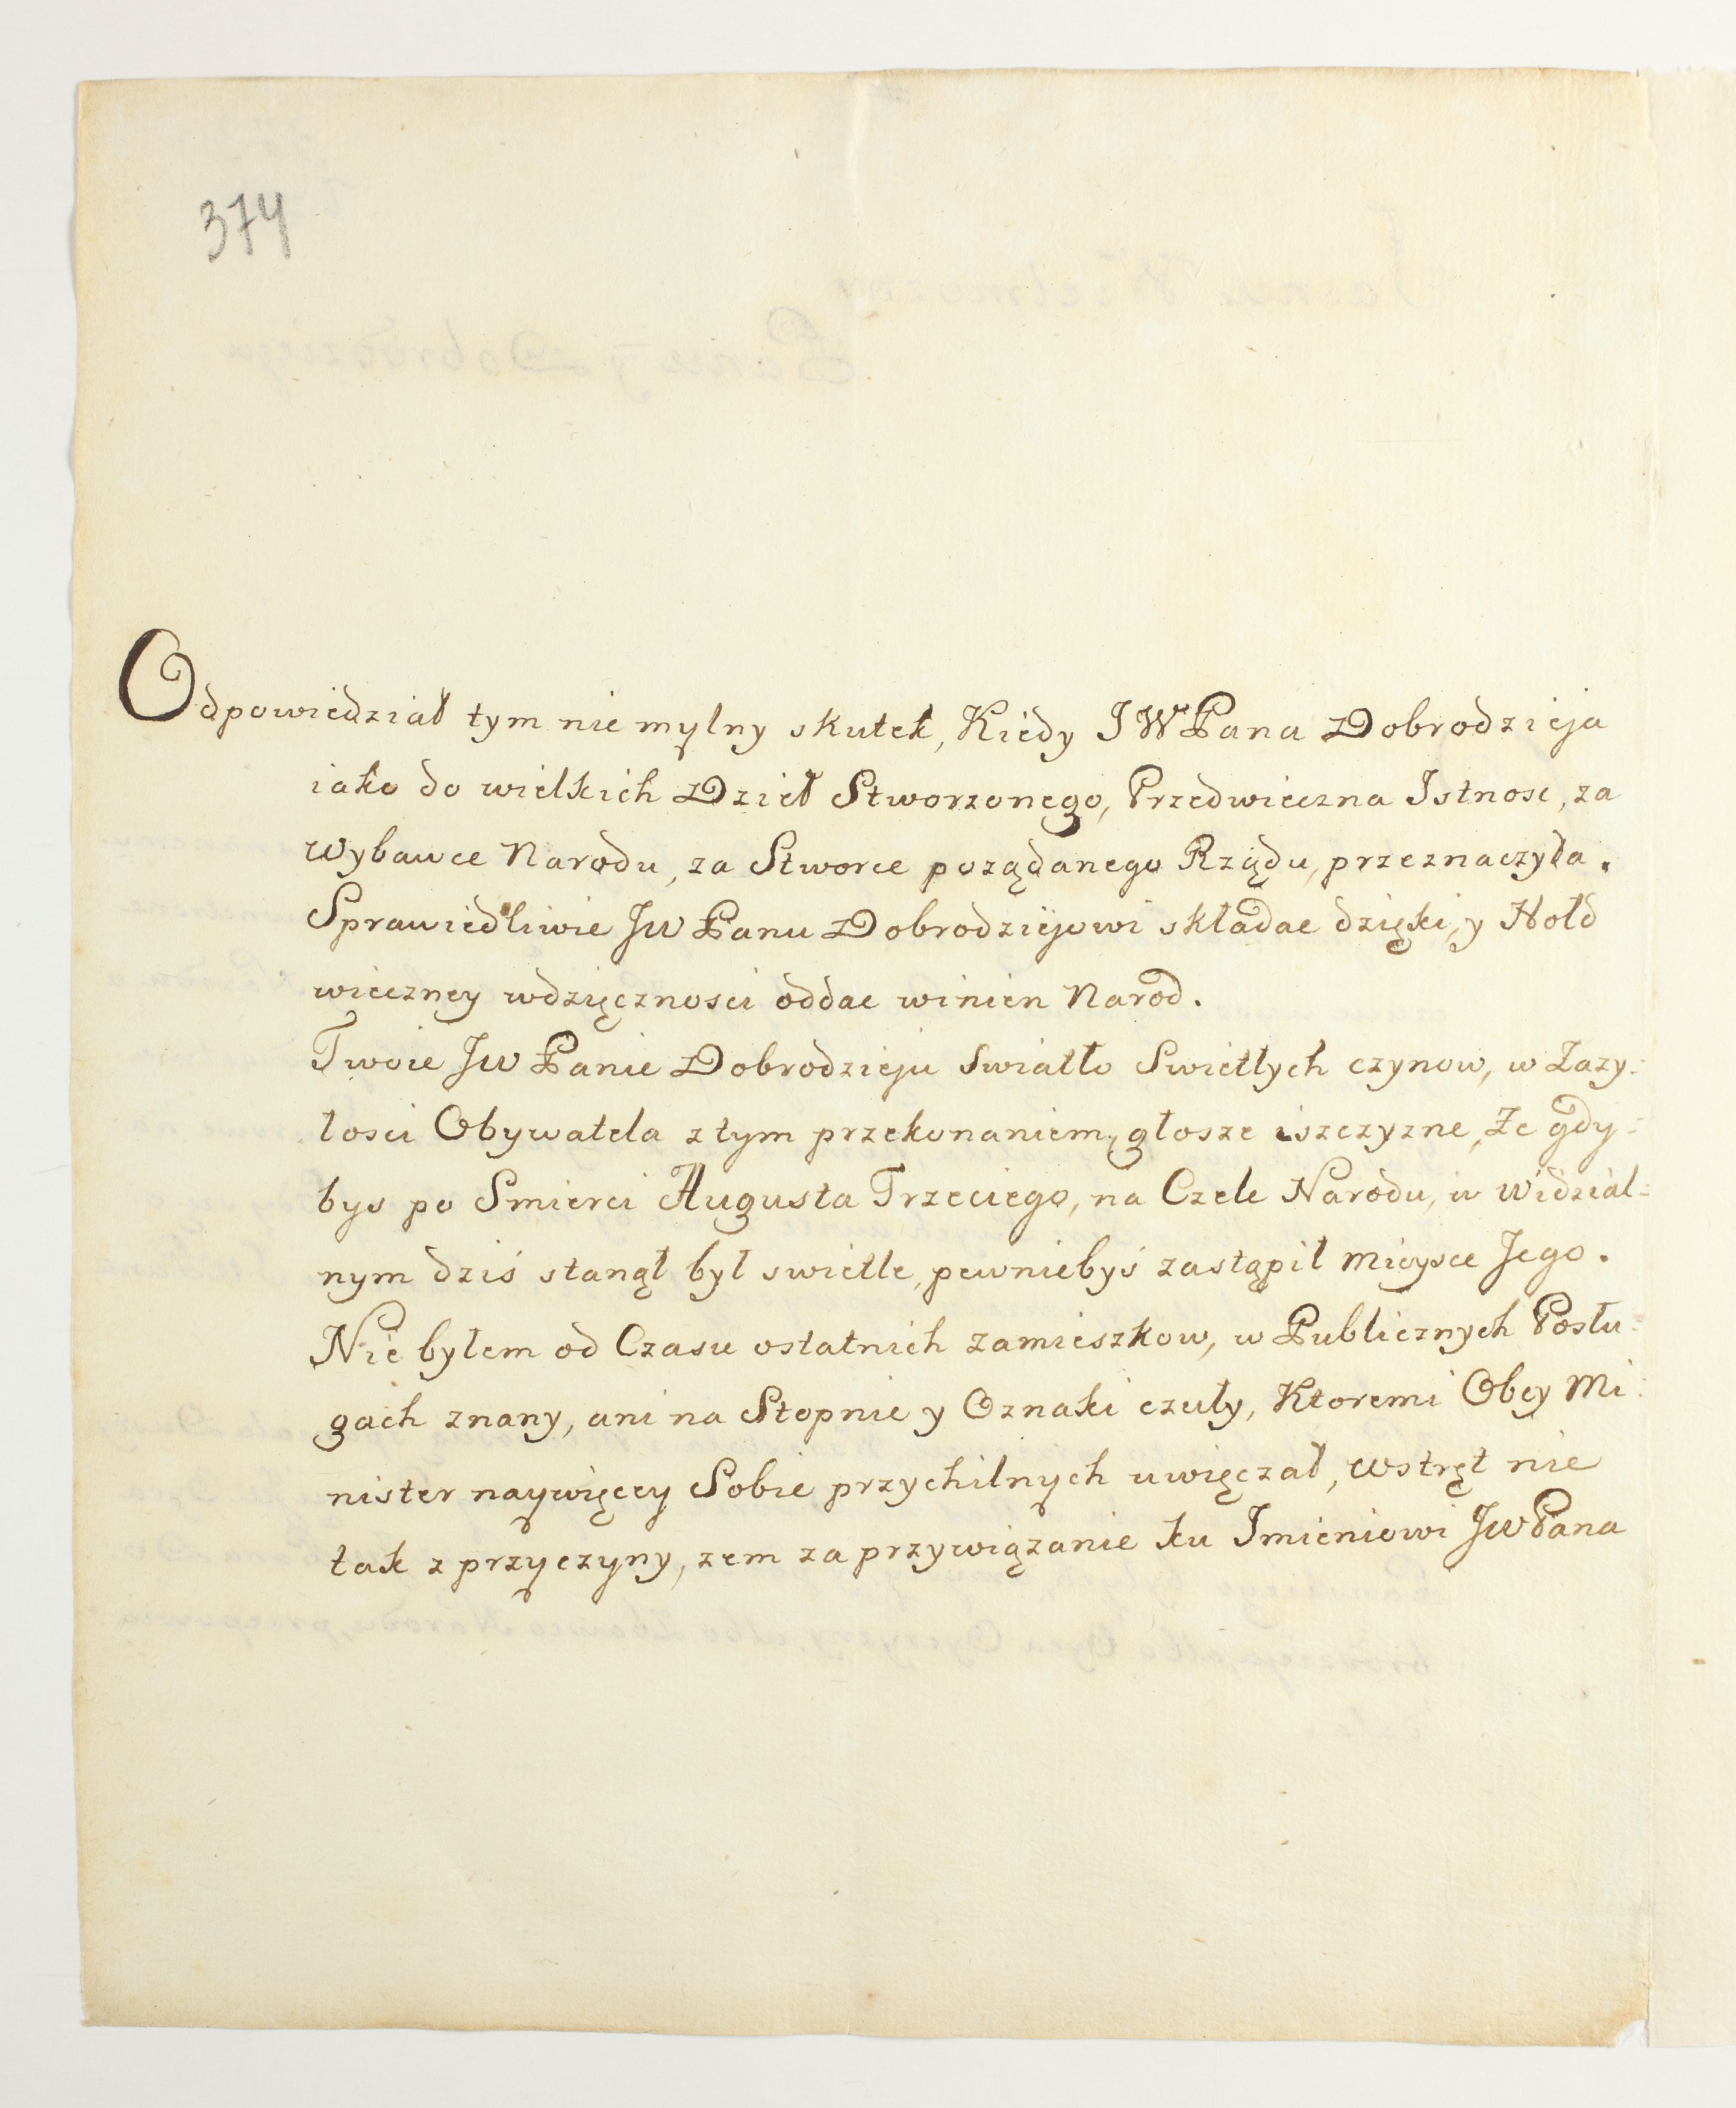 374
Odpowiedział tym nie mylny skutek, Kiedy JWPana Dobrodzieja
iako do wielkich Dzieł Stworzonego, Przedwieczna Istnosc, za
wybawce Narodu, za Stworce poządanego Rządu, przeznaczyła.
Sprawiedliwie JW Panu Dobrodziejowi składac dzięki, y Hołd
wieczney wdzięcznosci oddac winien Narod.
Twoie JW Panie Dobrodzieju swiatło Swietłych czynow, w Zazy-
łosci Obywatela z tym przekonaniem, głosze iszczyzne, Ze gdy-
bys po Smierci Augusta Trzeciego, na Czele Narodu, w widzial-
nym dziś stanął był swietle, pewniebyś zastąpił mieysce Jego.
Nie byłem od Czasu ostatnich zamieszkow, w Publicznych Posłu-
gach znany, ani na Stopnie y Oznaki czuły, Ktoremi Obcy Mi-
nister naywięcey Sobie przychilnych uwięczał, wstręt nie
tak z przyczyny, zem za przywiązanie ku Imieniowi JWPana